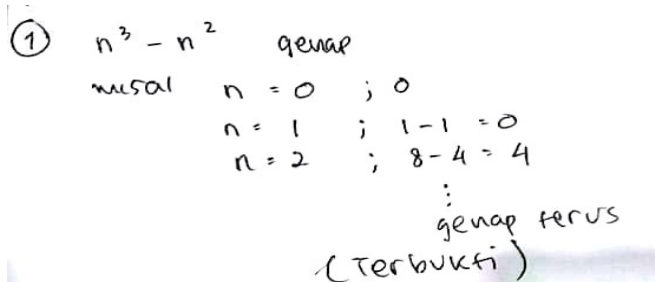 ① n³ - n² genap
misal n = 0 ; 0
n = 1 ; 1-1 = 0
n = 2 ; 8-4 = 4
⋮
genap terus
(Terbukti)